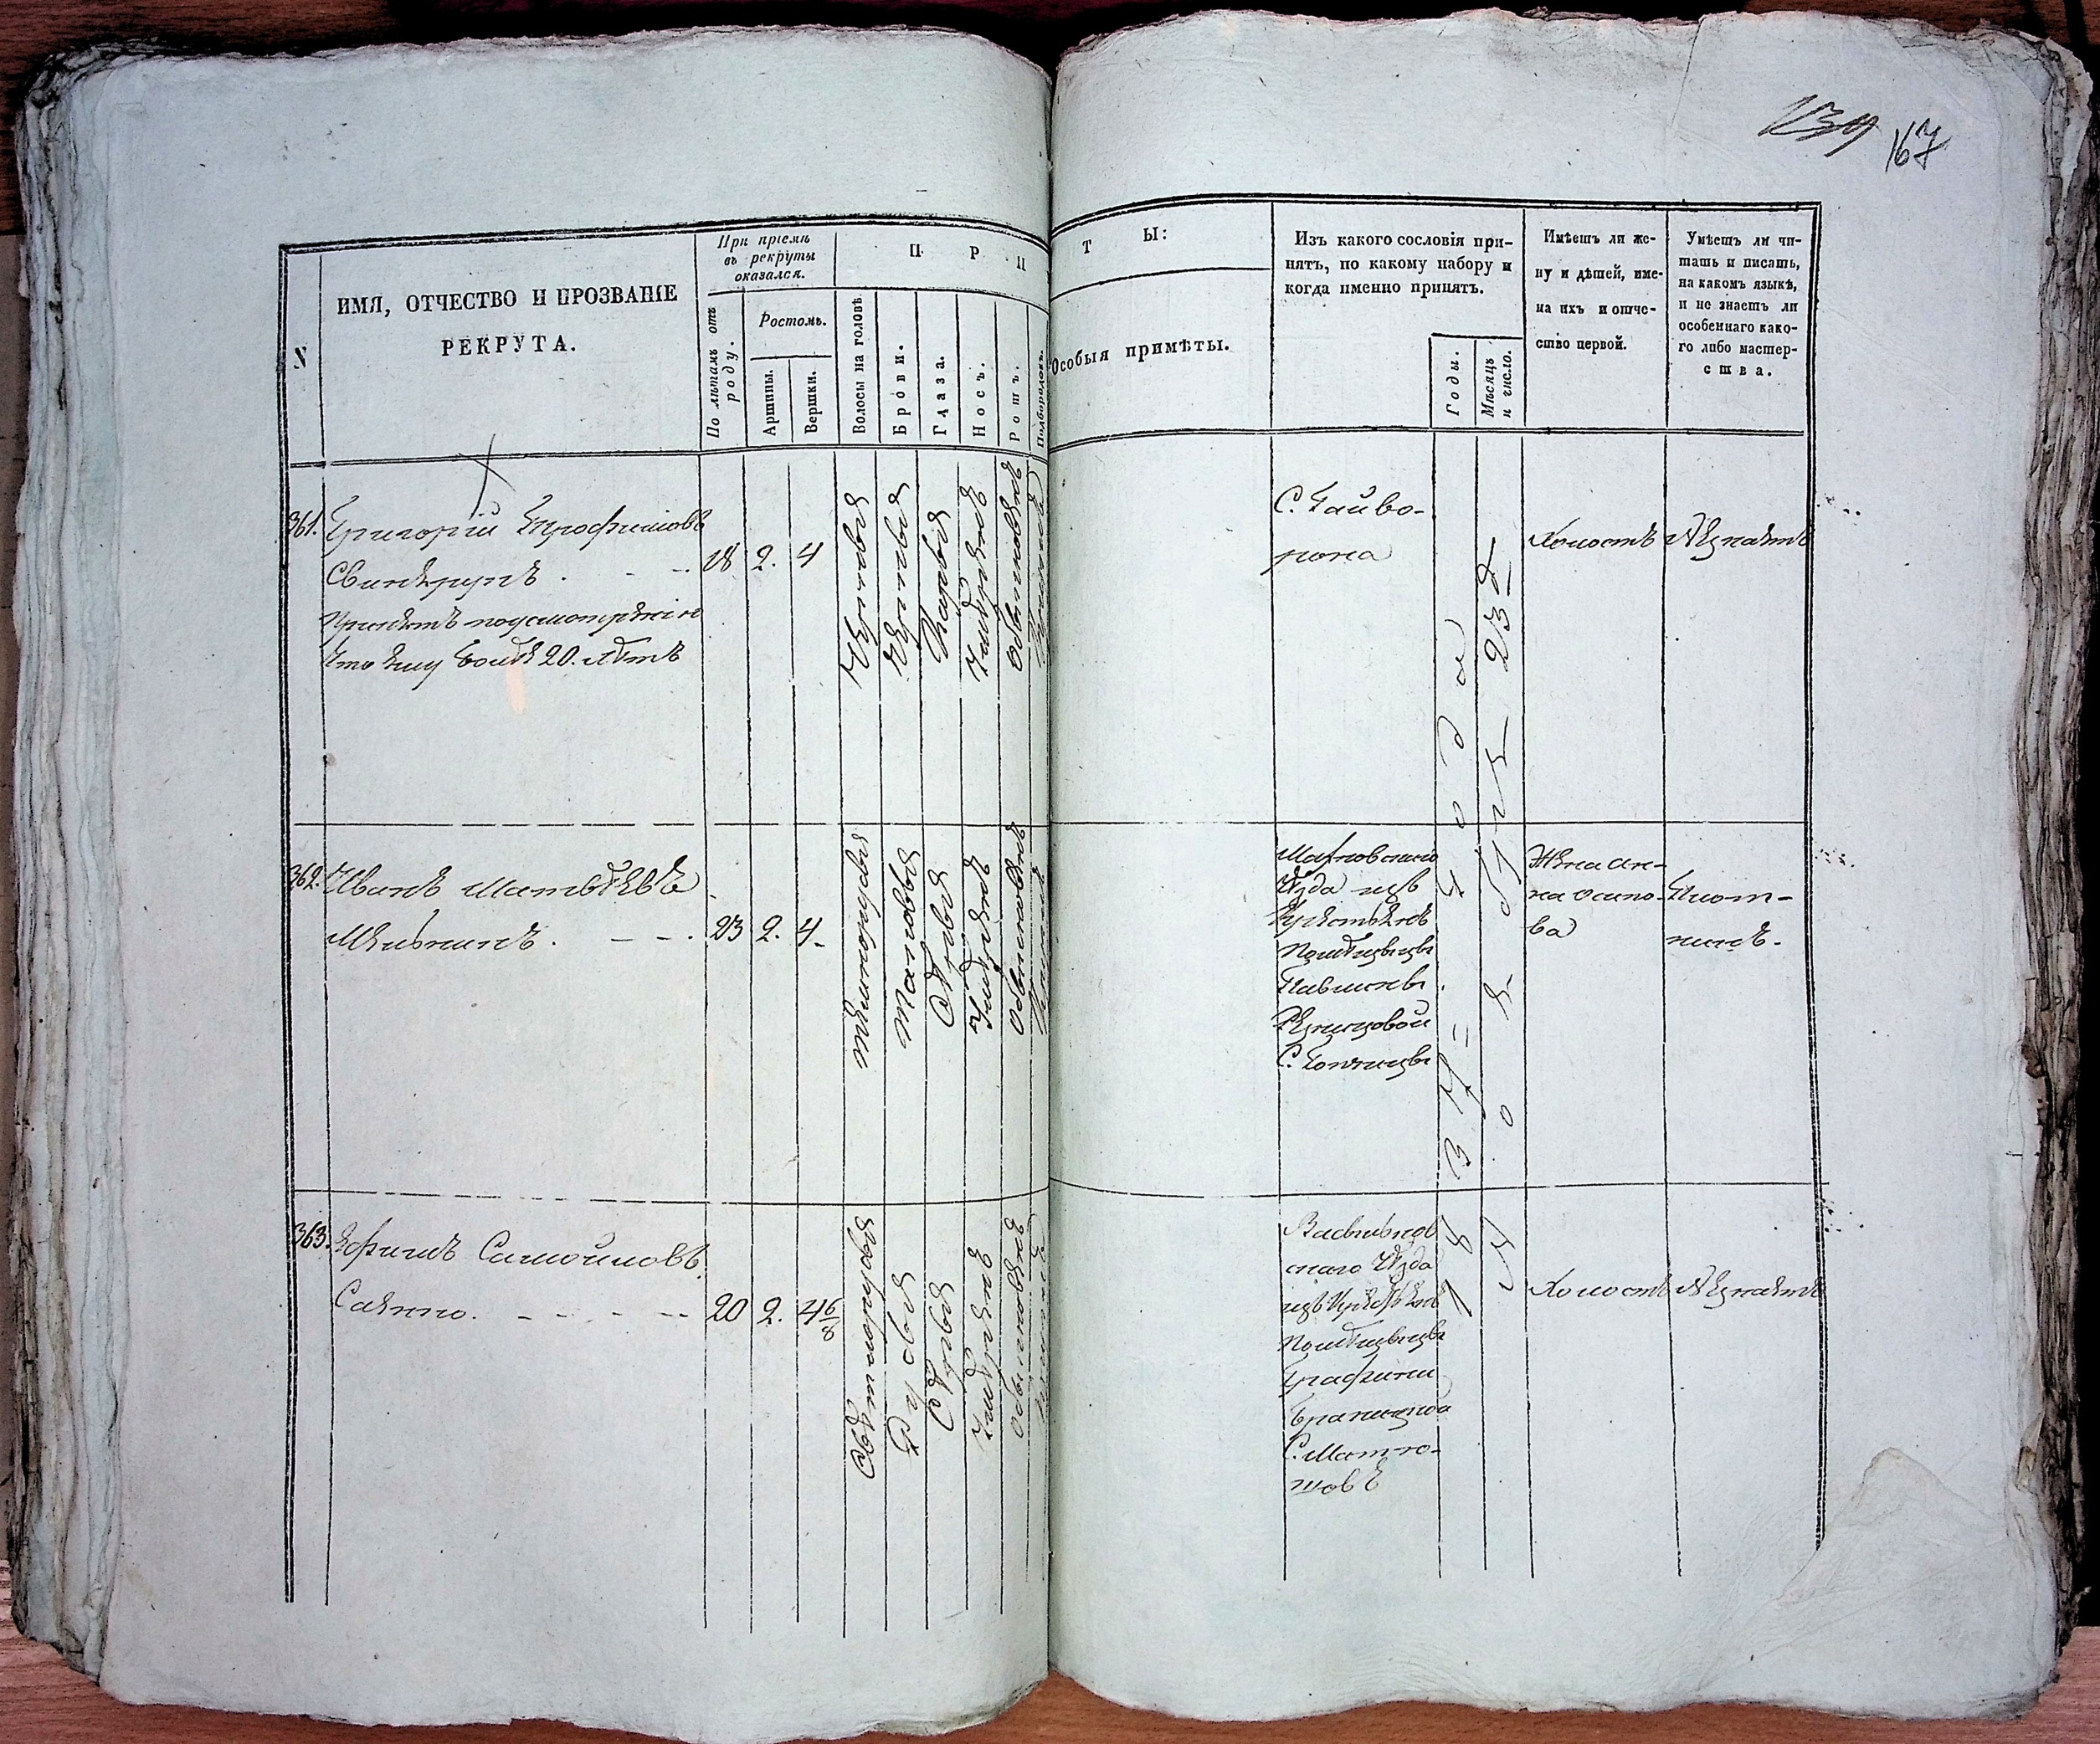 139 167
N
ИМЯ, ОТЧЕСТВО И ПРОЗВАНІЕ
РЕКРУТА.
При пріемѣ
въ рекруты
оказался.
По лѣтамъ отъ
роду.
Ростомъ.
Аршины.
Вершки.
П Р И
Волосы на головѣ.
Брови.
Глаза.
Носъ.
Ротъ.
Подбородокъ.
Т Ы:
Особыя примѣты.
Изъ какого сословія при-
нятъ, по какому набору и
когда именно принятъ.
Годы.
Мѣсяцъ
и число.
Имѣетъ ли же-
ну и дѣтей, име-
на ихъ и отче-
ство первой.
Умѣетъ ли чи-
тать и писать,
на какомъ языкѣ,
и не знаетъ ли
особеннаго како-
го либо мастер-
ства.
361. Григорій Трофимовъ
Свинкрупъ
Принятъ по усмотренію
что ему болѣе 20. лѣтъ
18 2. 4
Русовыя
Русовыя
Карыя
Умѣренъ
обыкновенъ
С. Гайво-
рона
Холостъ
Незнаетъ
362. Иванъ Матвѣевъ
Мельникъ.
23 2. 4
темнорусыя
таковыя
Сѣрыя
Умѣренъ
обыкновенъ
Махновскаго
Уѣзда изъ
крестьянъ
Помѣщицы
Павлины
С.
Жена Ан-
на Осипо-
ва
Плот-
никъ.
363. Ефимъ Самойловъ
Саенко.
20 2. 4 6/8
Свѣтлорусыя
Русовыя
Сѣрыя
Умѣренъ
обыкновенъ
Васильков-
скаго Уѣзда
изъ крестьянъ
Помѣщицы
Графини
Браницкой
С. Матю-
шовъ
Холостъ
Незнаетъ
18
года
23